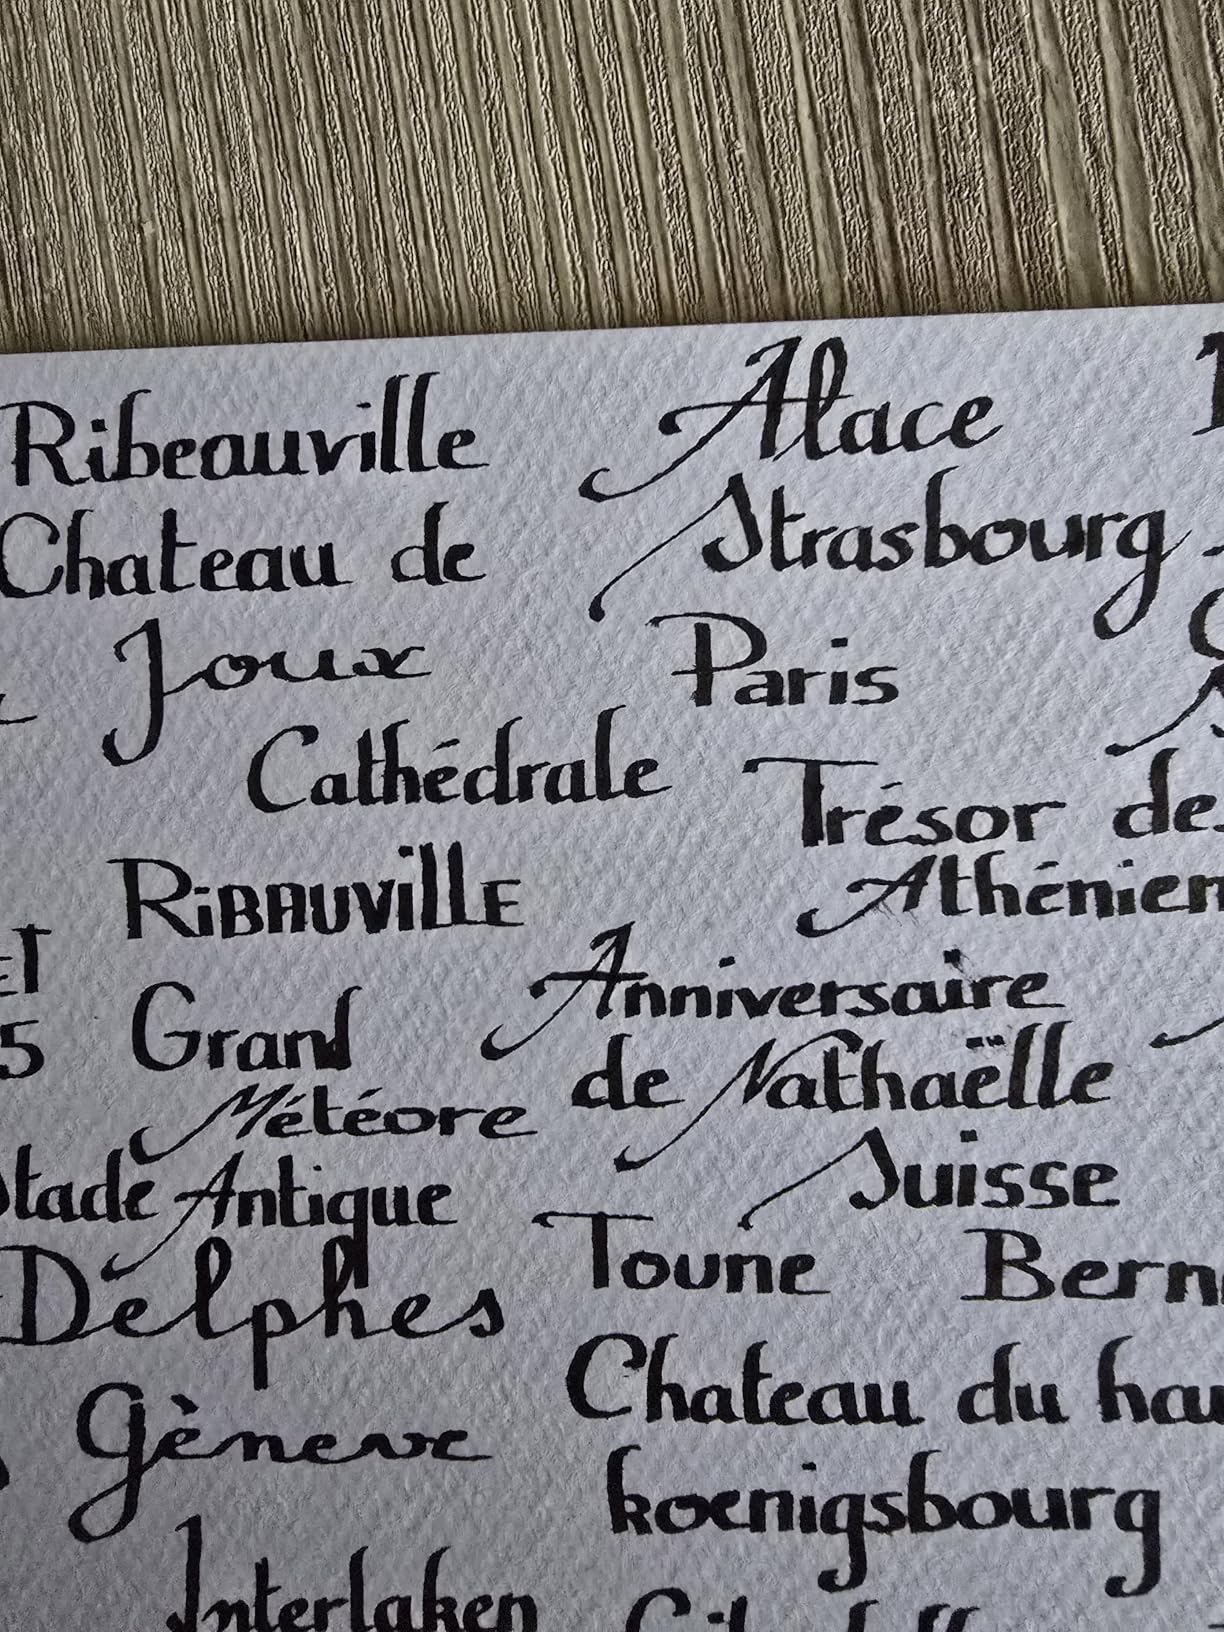 Ribeauville
Alace
Chateau de
Strasbourg
Joux
Paris
Cathédrale
Trésor des
RiBAUVillE
Athénien
ET
Anniversaire
5
Grand
de Nathaëlle
Météore
Suisse
Stade Antique
Toune
Bern
Delphes
Chateau du hau
Gèneve
koenigsbourg
Interlaken